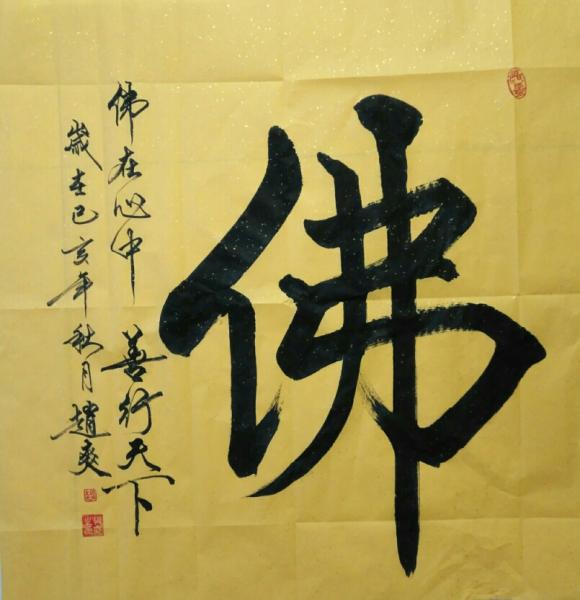 佛
佛在心中 善行天下
歲在己亥年秋月趙爽